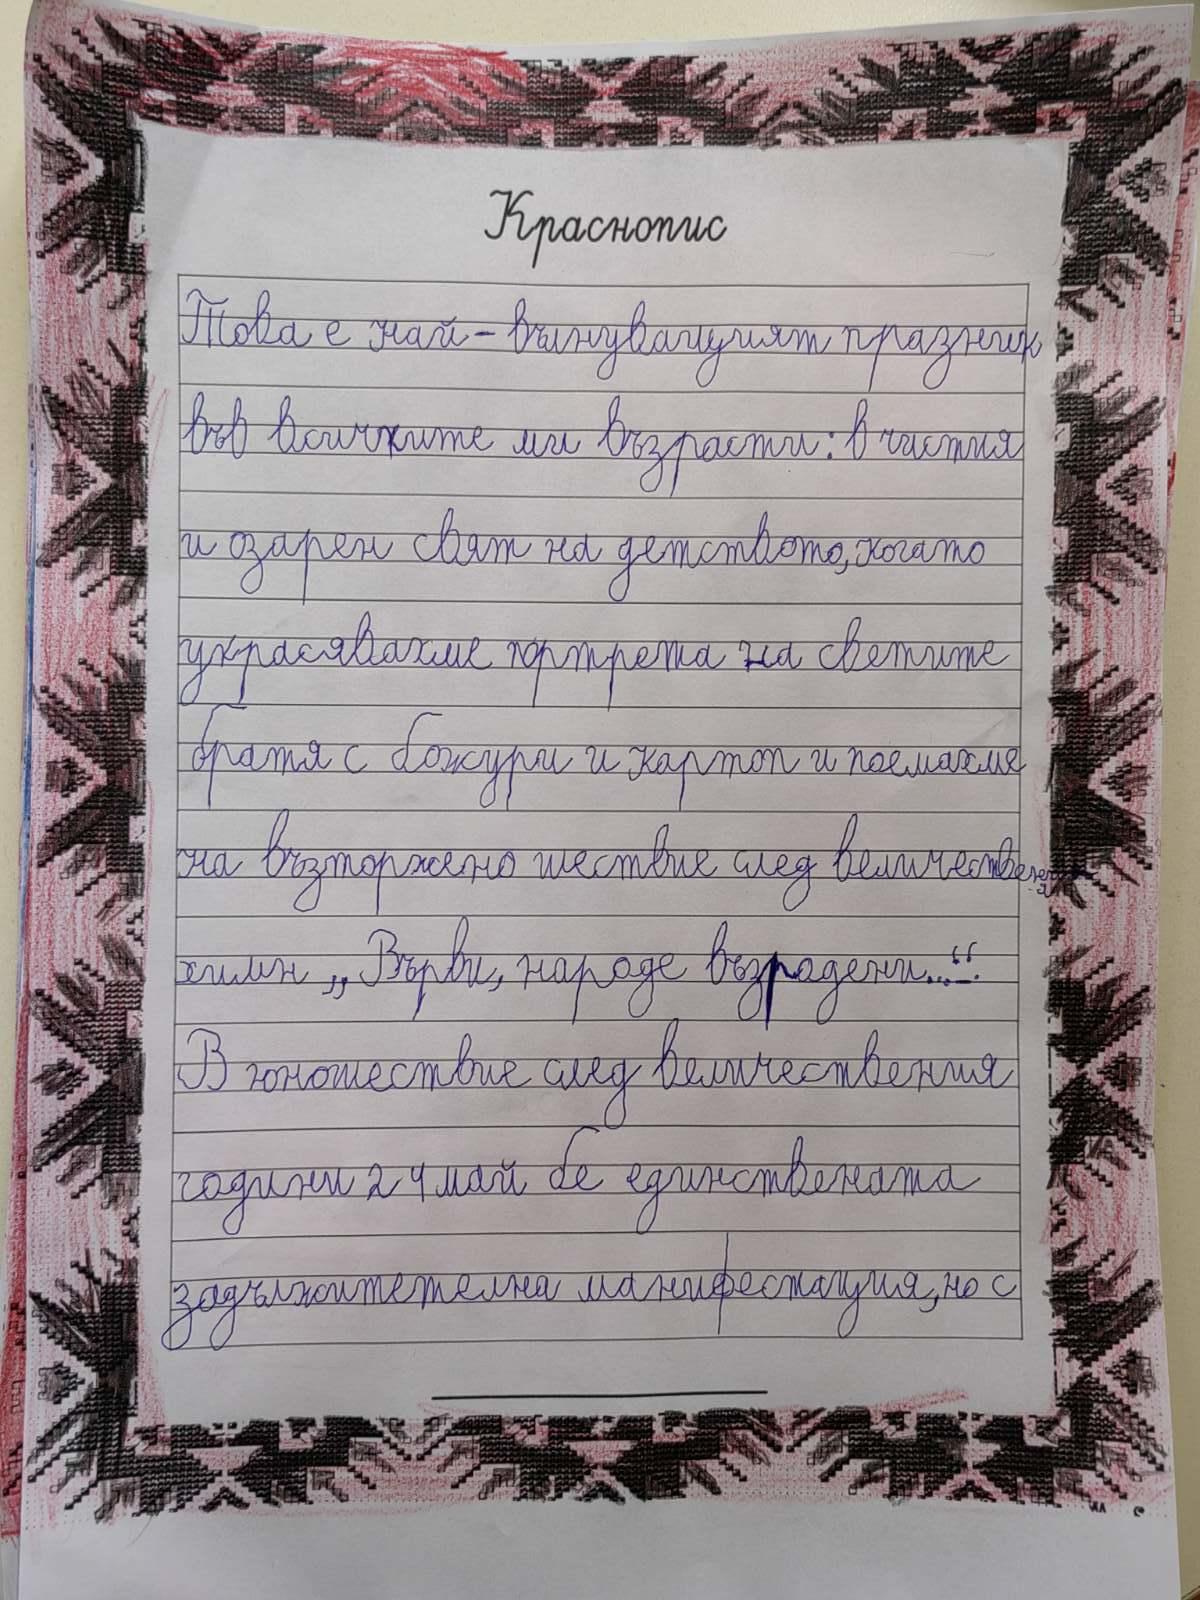 Краснопис
Това е най-вълнуващият празник
във всичките ми възрасти: в чистия
и озарен свят на детството, когато
украсявахме портрета на светите
братя с божури и картоп и поемахме
на възторжено шествие след величествения
химн „Върви, народе възрадени...“.
В юношествие след величествения
години 24 май бе единствената
задължитетелна манифестация, но с